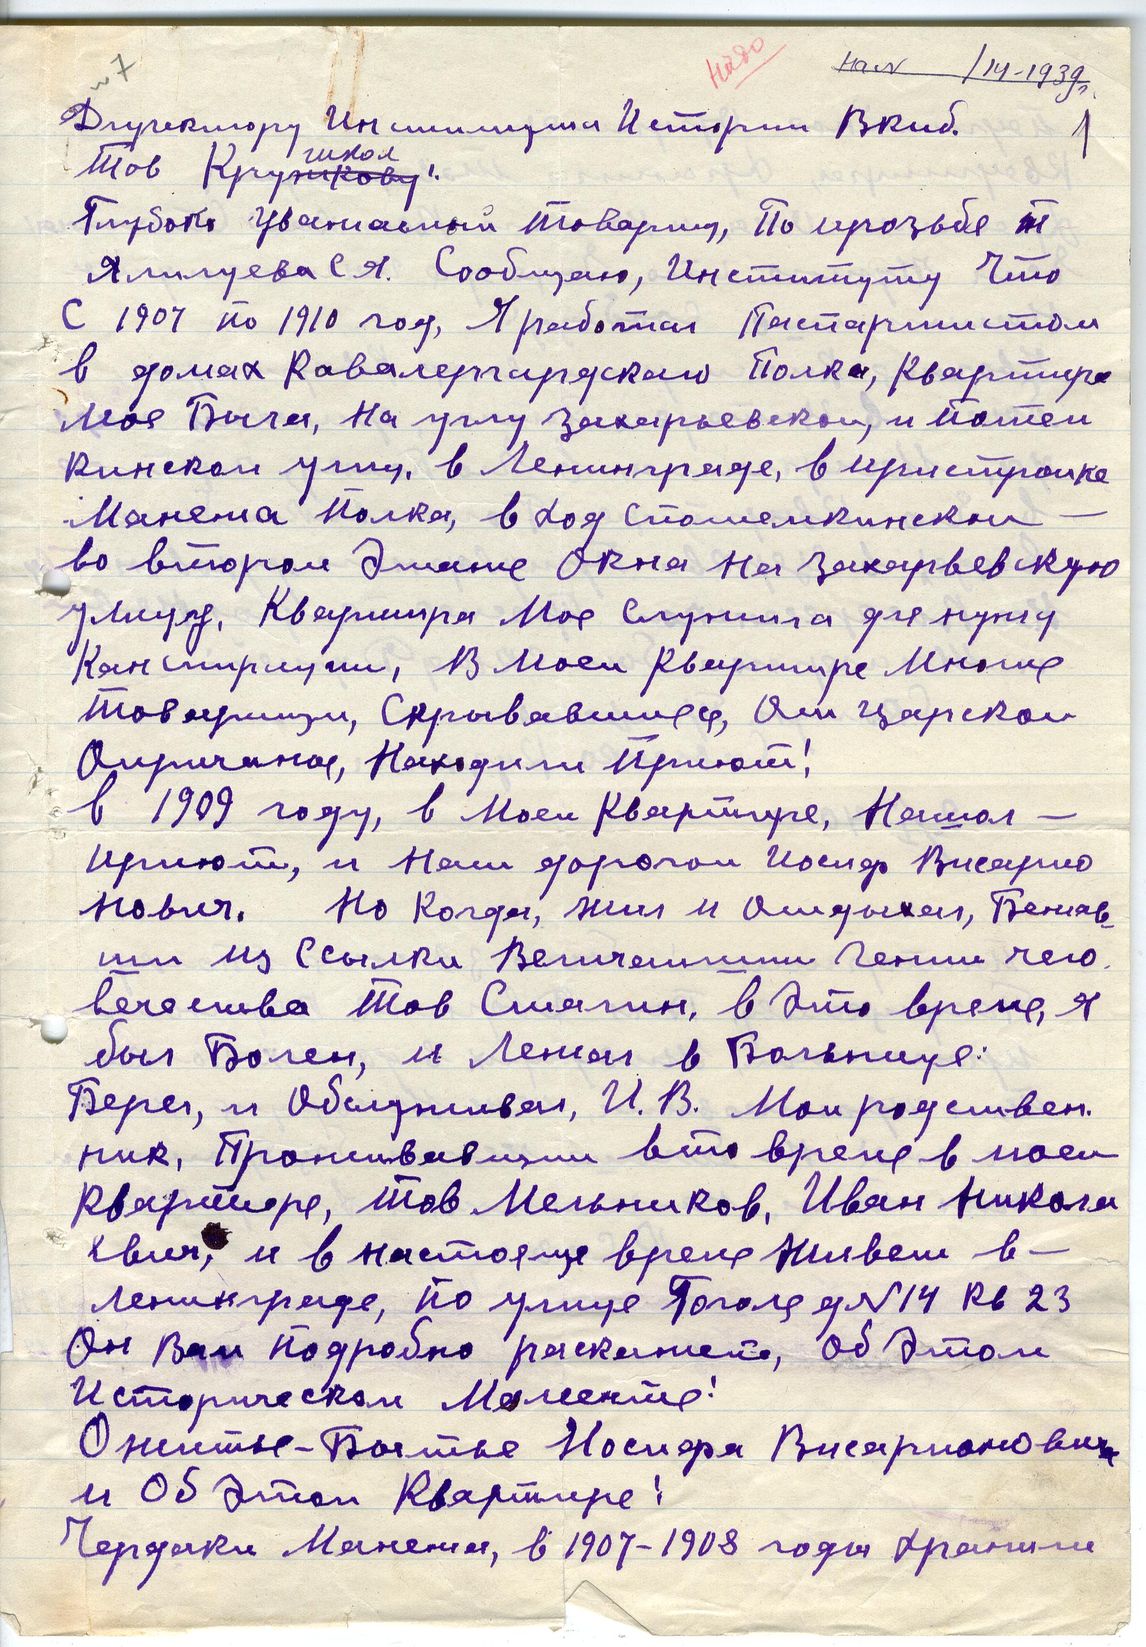 Надо
на № /14-1939г.
1
Директору Института Истории ВКПб.
Тов Кручкол Круникову!
Глубоко Уважаемый товарищ, По прозьбе т
Алилуева С Я. Сообщаю, Институту Что
С 1907 по 1910 год, Я работал Паспартистом
в домах Кавалергардскаго Полка, Квартира
Моя Была, На углу Захарьевской, и Потем
кинской улиц. в Ленинграде, в пристройке
Манежа Полка, в ход с потемкинской —
во втором Этаже Окна на Захарьевскую
улицу, Квартира Моя Служила для нужд
Канспирации, В Моей Квартире Многие
Товарищи, Скрывавшиеся, От царской
Опричины, Находили Приют!
в 1909 году, в Моей Квартире, Нашол —
приют, и Наш дорогой Иосиф Висарио
нович. Но Когда, жил и Отдыхал, Бежав-
ши из Ссылки Величайший Гений чело
вечества Тов Сталин, в Это время, Я
был Болен, и Лежал в Больнице:
Берег, и Обслуживал, И. В. Мой родствен.
ник, Проживавший вто время в моей
Квартире, Тов Мельников, Иван Никола
евич, и в настояще время Живет в —
Ленинграде, по улице Гоголя д № 14 Кв 23
Он Вам Подробно раскажет, Об Этом
Историческом Моменте!
О житье-Бытье Иосифа Висарионовича
и Об Этой Квартире!
Чердаки Манежа, в 1907-1908 годы хранили